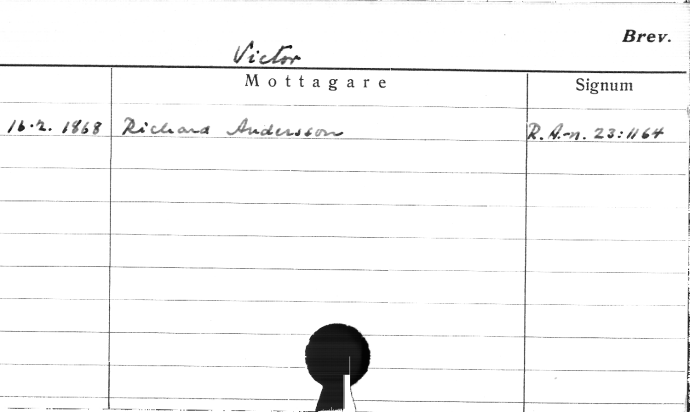 Brev.
Victor
Mottagare Signum
16.2. 1868 Richard Andersson R. A.-n. 23:1164